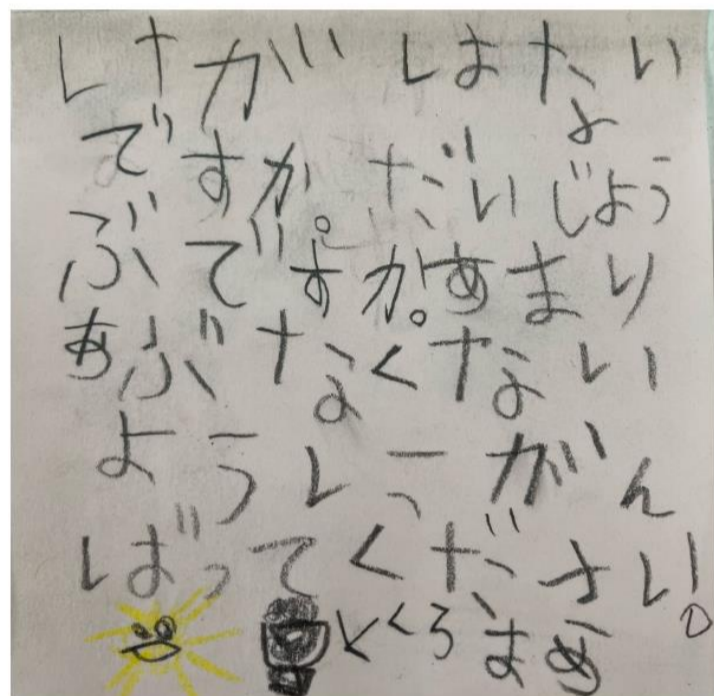 けがはたい
ですか。だいじょう
ぶですか。あまり
あぶなくない
ように がん
ばってください!
とくろ まあ